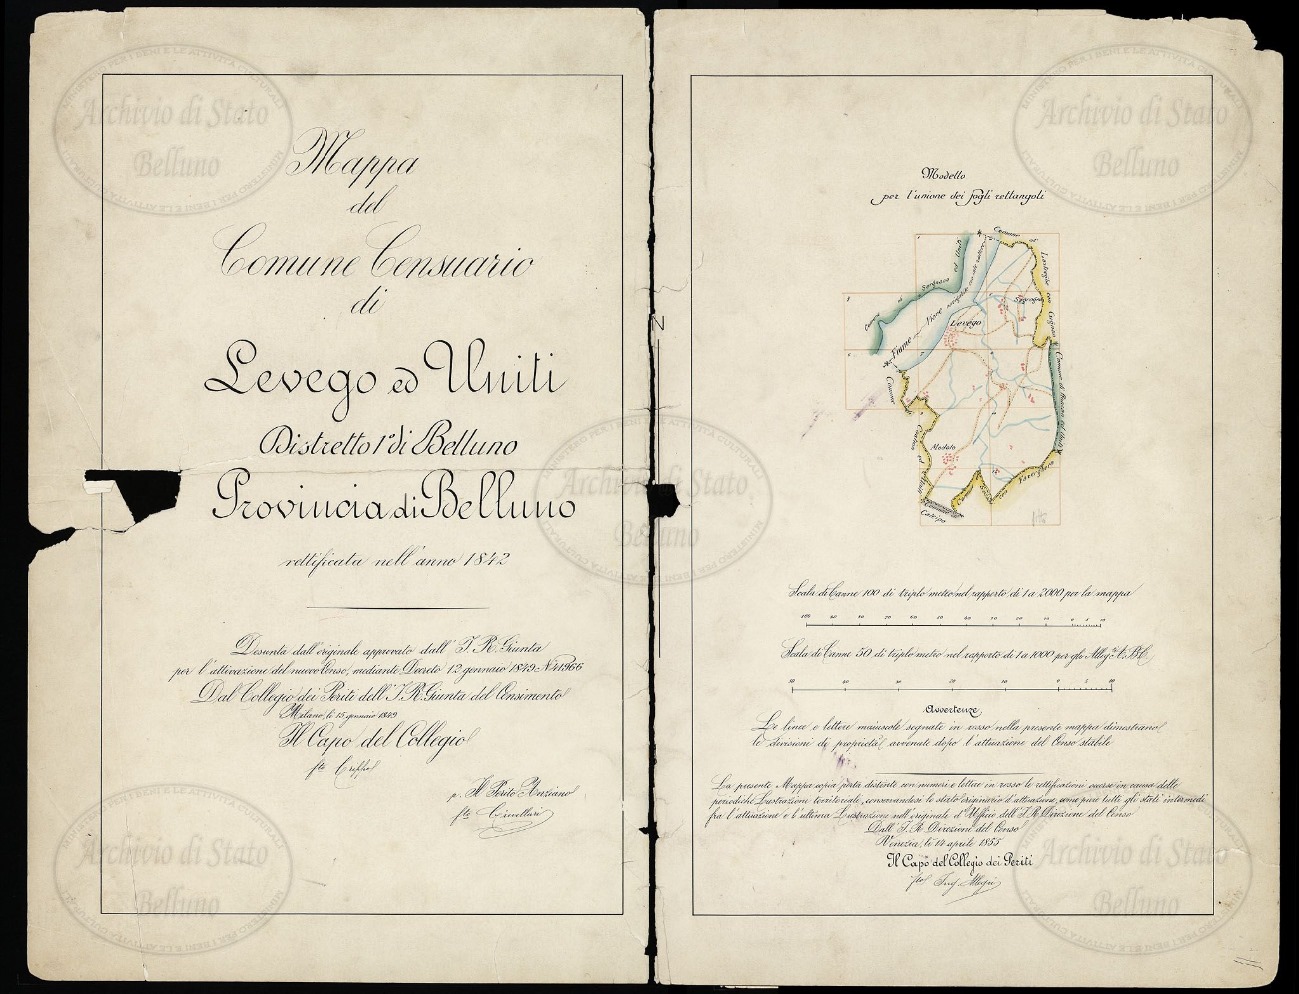 Mappa
del
Comune Censuario
di
Levego ed Uniti
Distretto 1° di Belluno
Provincia di Belluno
rettificata nell'anno 1842
Desunta dall'originale approvato dall' I. R. Giunta
per l'attivazione del nuovo Censo, mediante Decreto 12 gennaio 1849 N° 41966
Dal Collegio dei Periti dell' I. R. Giunta del Censimento
Milano, li 15 gennaio 1849
Il Capo del Collegio
fto
p. Il Perito Anziano
fto
N
Modello
per l'unione dei fogli rettangoli
Comune
Fiume Piave
Levego
Sagrogna
Modolo
Scala di Canne 100 di triplo metro nel rapporto di 1 a 2000 per la mappa
100 80 70 60 50 40 30 20 10 0 5 10
Scala di Canne 50 di triplo metro nel rapporto di 1 a 1000 per gli Alleg.ti A. B. C.
50 40 30 20 10 0 5 10
Avvertenze
Le linee e lettere maiuscole segnate in rosso nella presente mappa dimostrano
le divisioni di proprietà avvenute dopo l'attuazione del Censo stabile
La presente Mappa copia porta distinte con numeri e lettere in rosso le rettificazioni occorse in causa delle
periodiche Lustrazioni territoriali, conservandosi lo stato originario d'attuazione, come pure tutti gli stati intermedi
fra l'attuazione e l'ultima Lustrazione nell'originale d'Ufficio dell' I. R. Direzione del Censo
Dall' I. R. Direzione del Censo
Venezia, li 14 aprile 1855
Il Capo del Collegio dei Periti
fto Ing. Allegri
Archivio di Stato
Belluno
MINISTERO PER I BENI E LE ATTIVITÀ CULTURALI